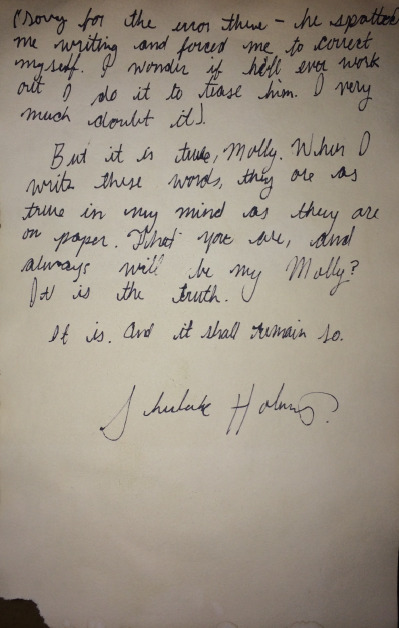 (Sorry for the error there – he spotted
me writing and forced me to correct
myself. I wonder if he'll ever work
out I do it to tease him. I very
much doubt it).
But it is true, Molly. When I
write these words, they are as
true in my mind as they are
on paper. That you are, and
always will be my Molly?
It is the truth.
It is. And it shall remain so.
Sherlock Holmes.